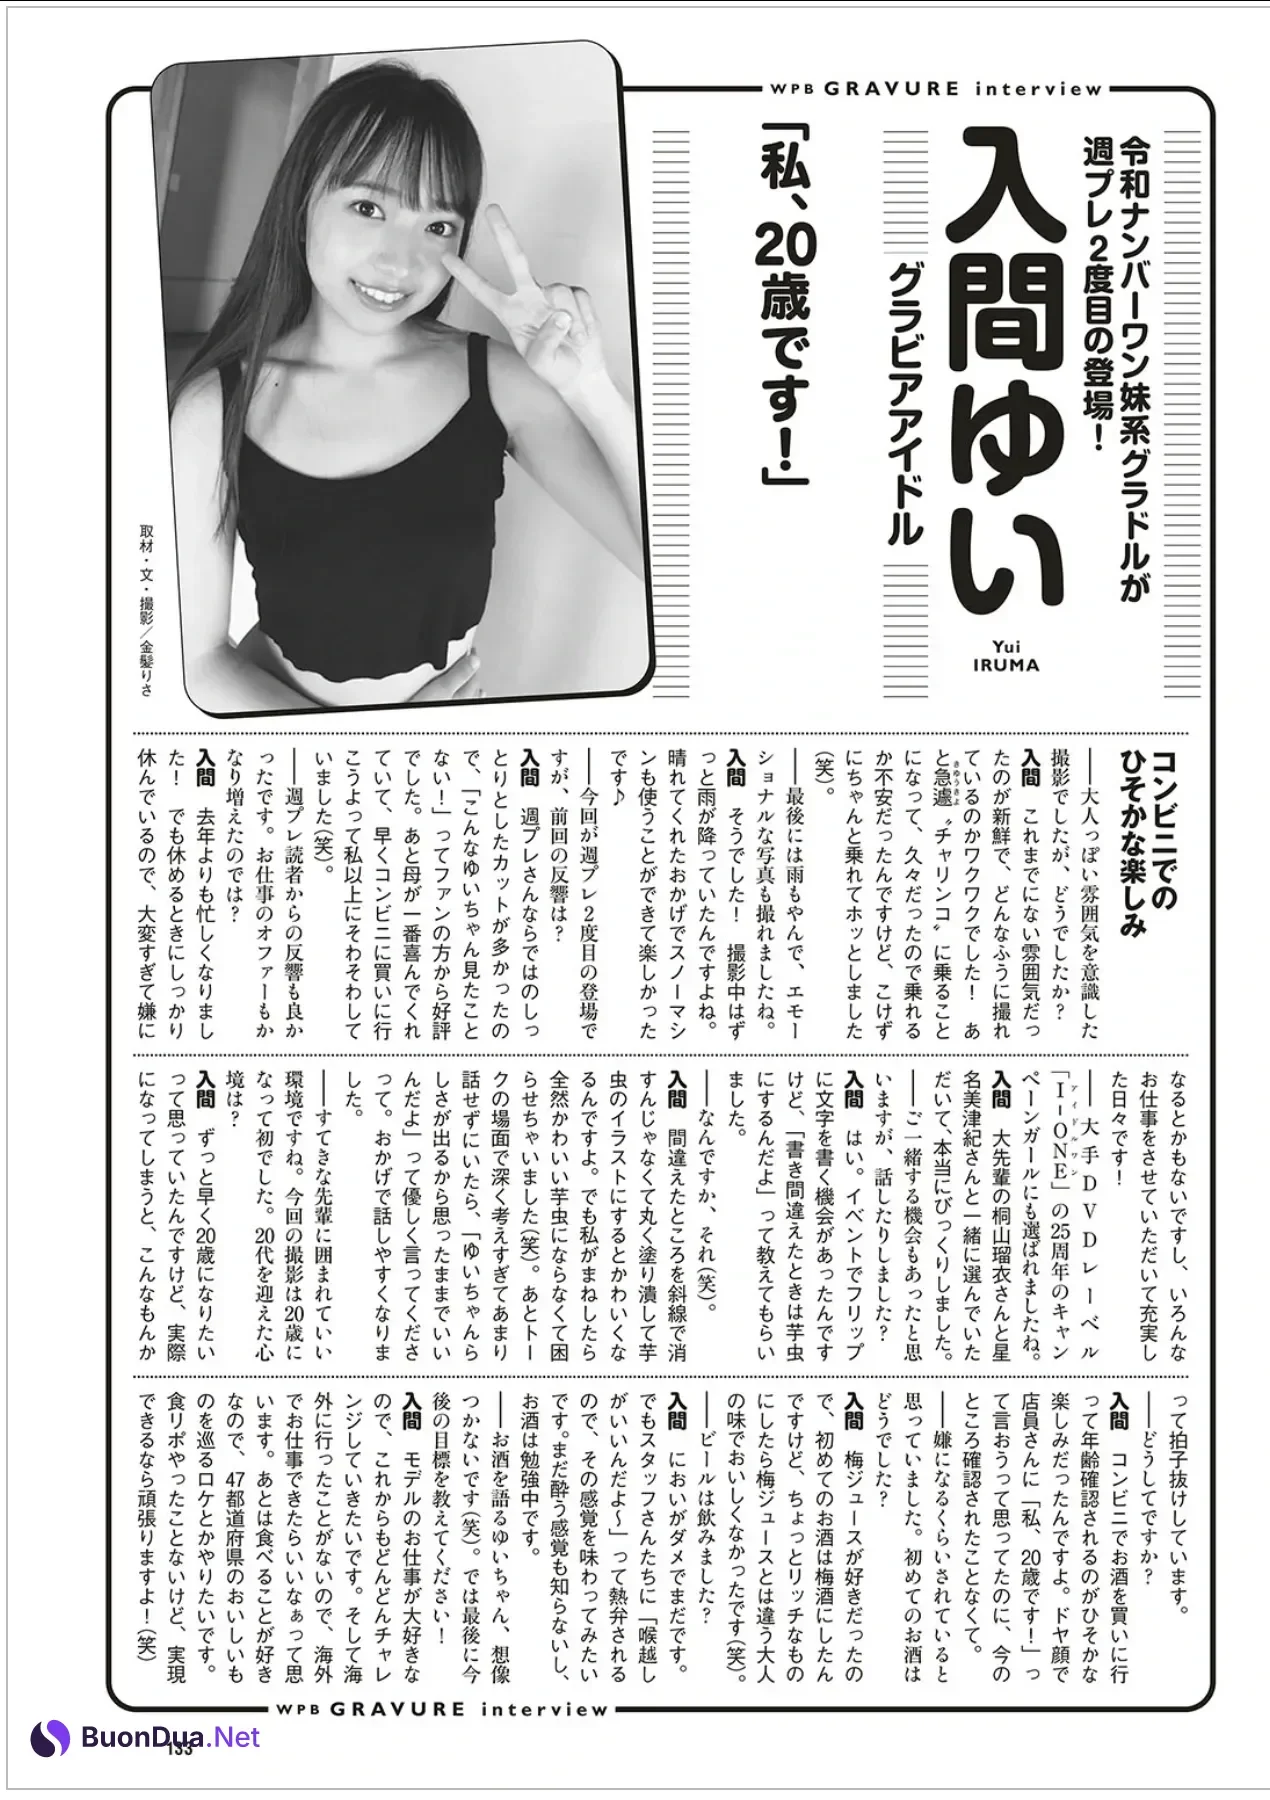 WPB GRAVURE interview
令和ナンバーワン妹系グラドルが
週プレ2度目の登場！
入間ゆい
Yui
IRUMA
グラビアアイドル
「私、20歳です！」
取材・文・撮影／金髪りさ
コンビニでの
ひそかな楽しみ
――大人っぽい雰囲気を意識した
撮影でしたが、どうでしたか？
入間　これまでにない雰囲気だっ
たのが新鮮で、どんなふうに撮れ
ているのかワクワクでした！　あ
と急遽〝チャリンコ〟に乗ること
きゅうきょ
になって、久々だったので乗れる
か不安だったんですけど、こけず
にちゃんと乗れてホッとしました
（笑）。
――最後には雨もやんで、エモー
ショナルな写真も撮れましたね。
入間　そうでした！　撮影中はず
っと雨が降っていたんですよね。
晴れてくれたおかげでスノーマシ
ンも使うことができて楽しかった
です♪
――今回が週プレ2度目の登場で
すが、前回の反響は？
入間　週プレさんならではのしっ
とりとしたカットが多かったの
で、「こんなゆいちゃん見たこと
ない！」ってファンの方から好評
でした。あと母が一番喜んでくれ
ていて、早くコンビニに買いに行
こうよって私以上にそわそわして
いました（笑）。
――週プレ読者からの反響も良か
ったです。お仕事のオファーもか
なり増えたのでは？
入間　去年よりも忙しくなりまし
た！　でも休めるときにしっかり
休んでいるので、大変すぎて嫌に
なるとかもないですし、いろんな
お仕事をさせていただいて充実し
た日々です！
――大手DVDレーベル
「I-ONE」の25周年のキャン
アイドルワン
ペーンガールにも選ばれましたね。
入間　大先輩の桐山瑠衣さんと星
名美津紀さんと一緒に選んでいた
だいて、本当にびっくりしました。
――ご一緒する機会もあったと思
いますが、話したりしました？
入間　はい。イベントでフリップ
に文字を書く機会があったんです
けど、「書き間違えたときは芋虫
にするんだよ」って教えてもらい
ました。
――なんですか、それ（笑）。
入間　間違えたところを斜線で消
すんじゃなくて丸く塗り潰して芋
虫のイラストにするとかわいくな
るんですよ。でも私がまねしたら
全然かわいい芋虫にならなくて困
らせちゃいました（笑）。あとトー
クの場面で深く考えすぎてあまり
話せずにいたら、「ゆいちゃんら
しさが出るから思ったままでいい
んだよ」って優しく言ってくださ
って。おかげで話しやすくなりま
した。
――すてきな先輩に囲まれてい
環境ですね。今回の撮影は20歳に
なって初でした。20代を迎えた心
境は？
入間　ずっと早く20歳になりたい
って思っていたんですけど、実際
になってしまうと、こんなもんか
って拍子抜けしています。
――どうしてですか？
入間　コンビニでお酒を買いに行
って年齢確認されるのがひそかな
楽しみだったんですよ。ドヤ顔で
店員さんに「私、20歳です！」っ
て言おうって思ってたのに、今の
ところ確認されたことなくて。
――嫌になるくらいされていると
思っていました。初めてのお酒は
どうでした？
入間　梅ジュースが好きだったの
で、初めてのお酒は梅酒にしたん
ですけど、ちょっとリッチなもの
にしたら梅ジュースとは違う大人
の味でおいしくなかったです（笑）。
――ビールは飲みました？
入間　においがダメでまだです。
でもスタッフさんたちに「喉越し
がいいんだよ〜」って熱弁される
ので、その感覚を味わってみたい
です。まだ酔う感覚も知らないし、
お酒は勉強中です。
――お酒を語るゆいちゃん、想像
つかないです（笑）。では最後に今
後の目標を教えてください！
入間　モデルのお仕事が大好きな
ので、これからもどんどんチャレ
ンジしていきたいです。そして海
外に行ったことがないので、海外
でお仕事できたらいいなぁって思
います。あとは食べることが好き
なので、47都道府県のおいしいも
のを巡るロケとかやりたいです。
食リポやったことないけど、実現
できるなら頑張りますよ！（笑）
WPB GRAVURE interview
133
BuonDua.Net